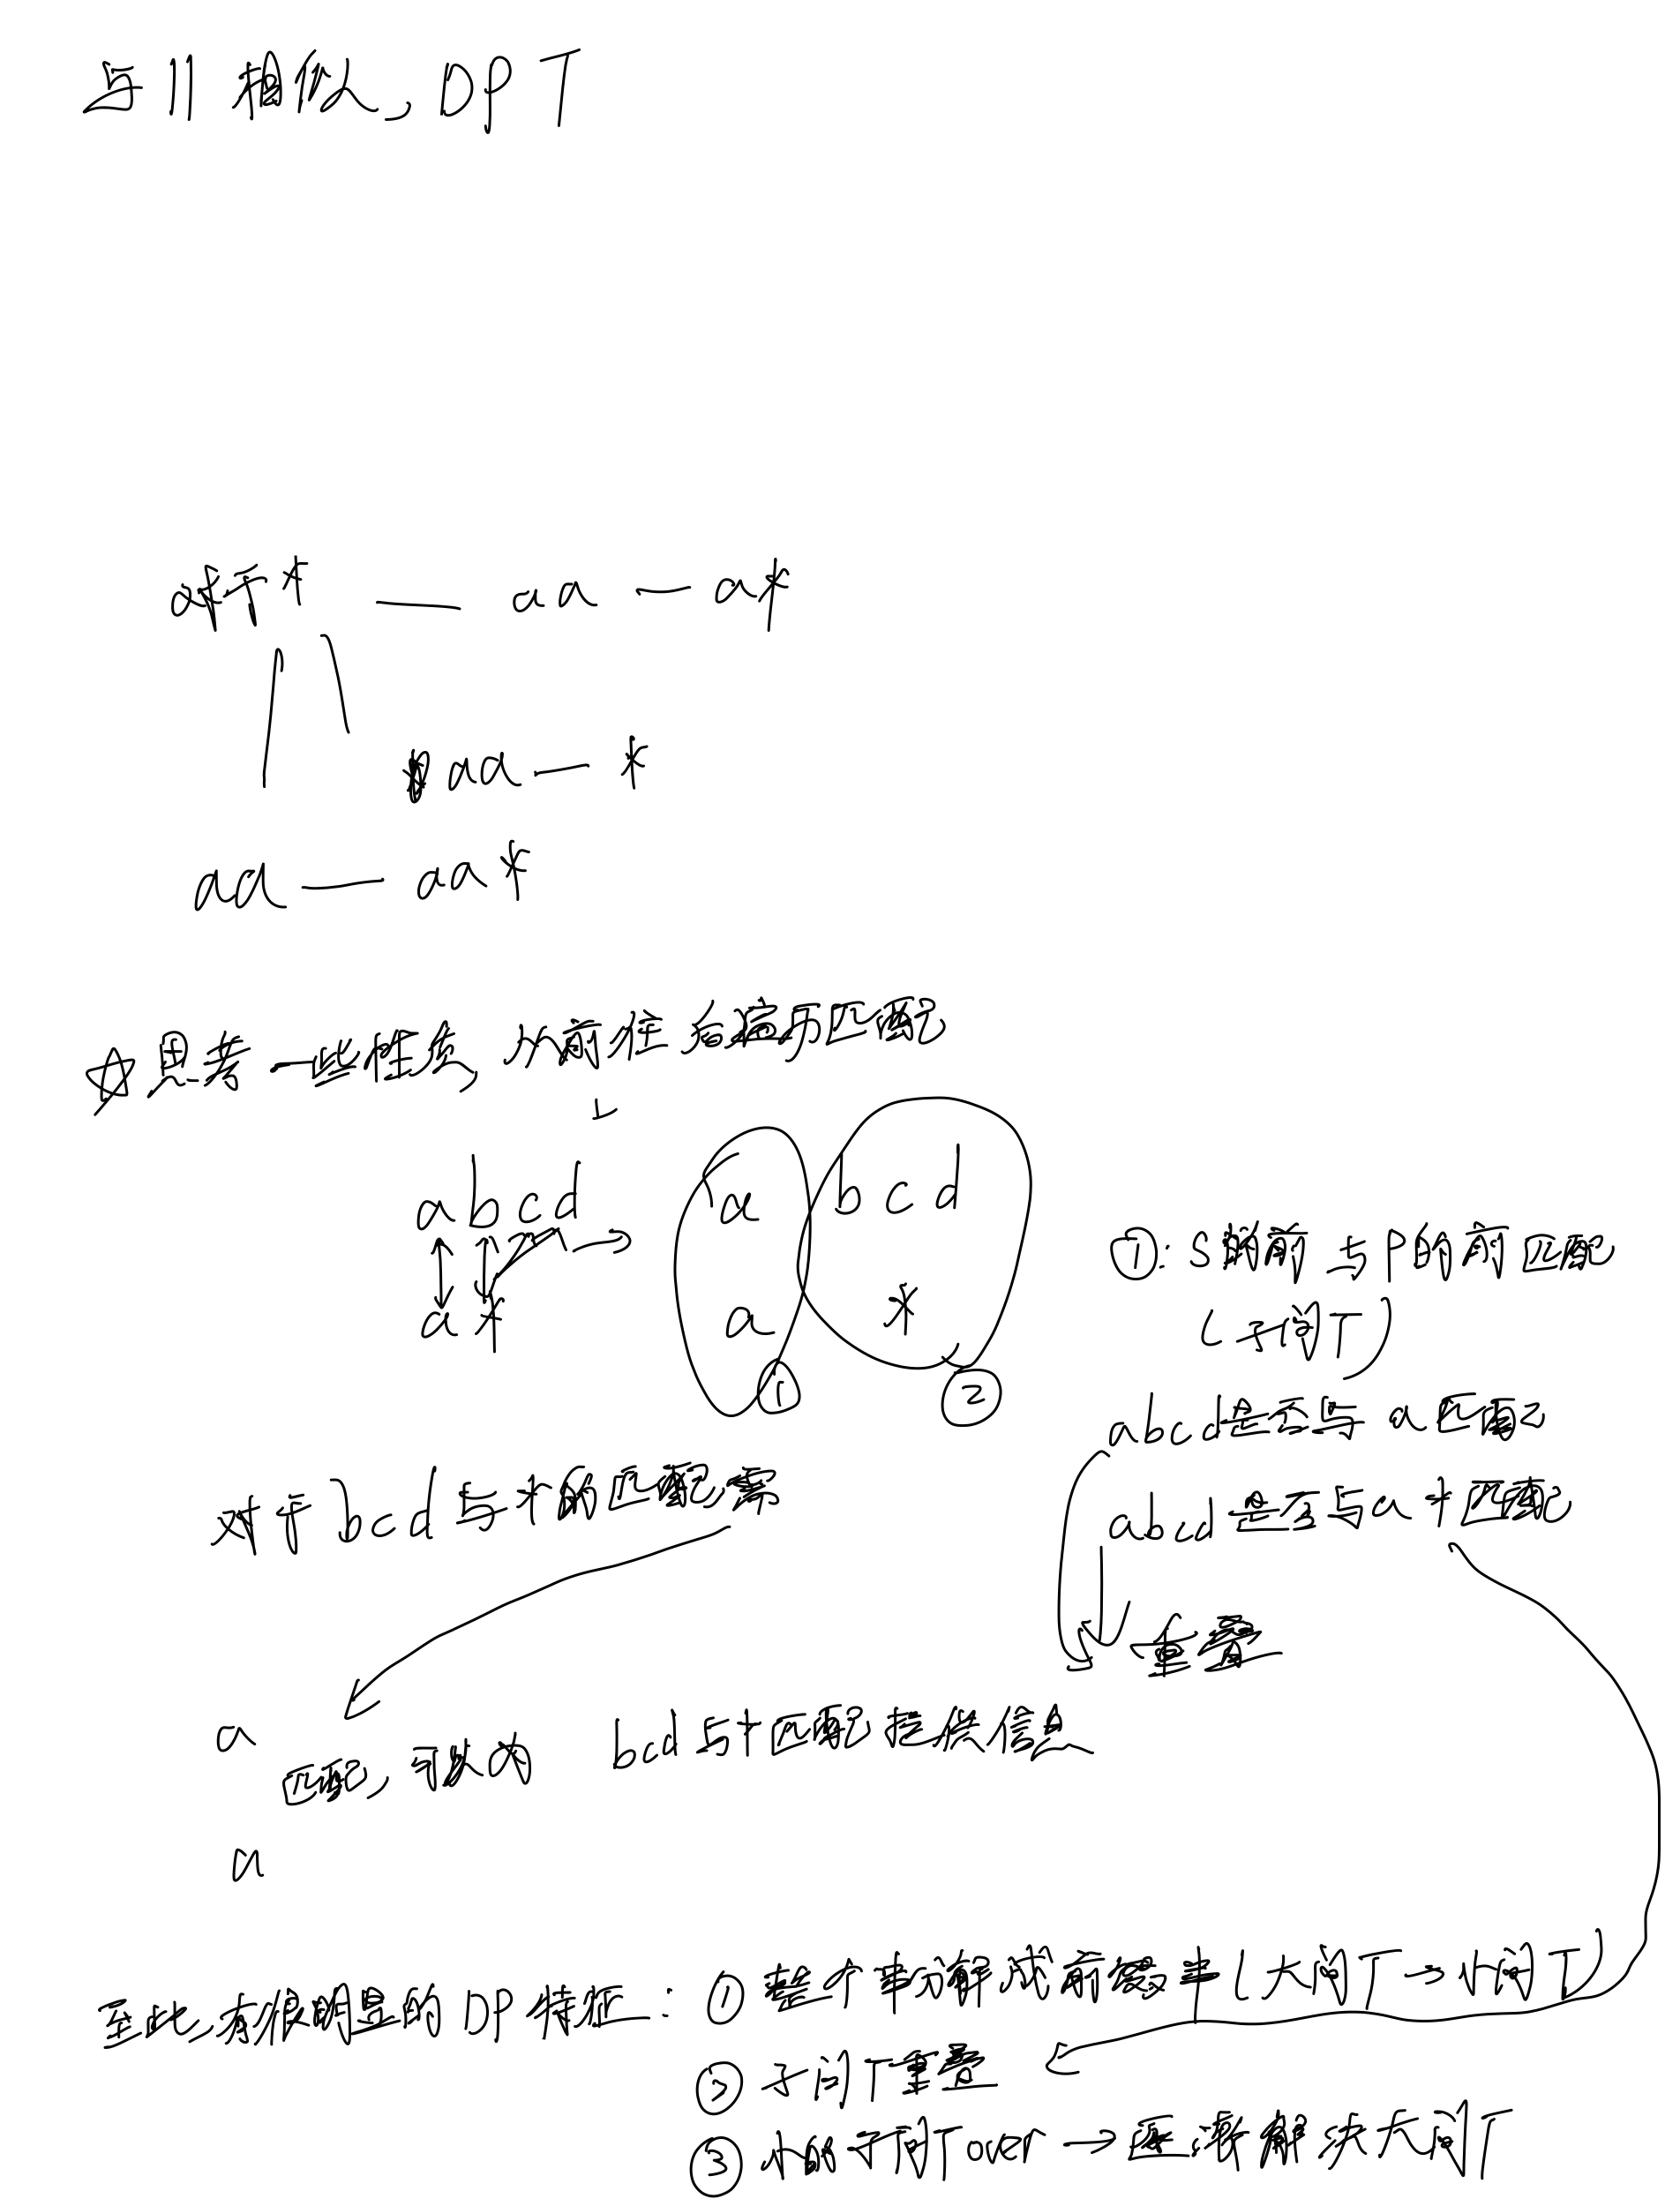 与11相似, DP T
对于* — aa — a*
aa — *
aa — aa*
☆思考一些性质, 从前往后遍历匹配
abcd
a*
a bcd
a *
① ②
①: S的前与P的前匹配
(子问T)
abcd是否与a匹配
abcd是否与a*匹配
重叠
对于bcd与*的匹配,需
a
匹配, 可以为 bcd与*匹配提供信息
a
至此,有很明显的DP特征: ①整个串分解成前缀串(大问T→小问T)
②子问T重叠
③小的子问T over → 逐渐解决大问T